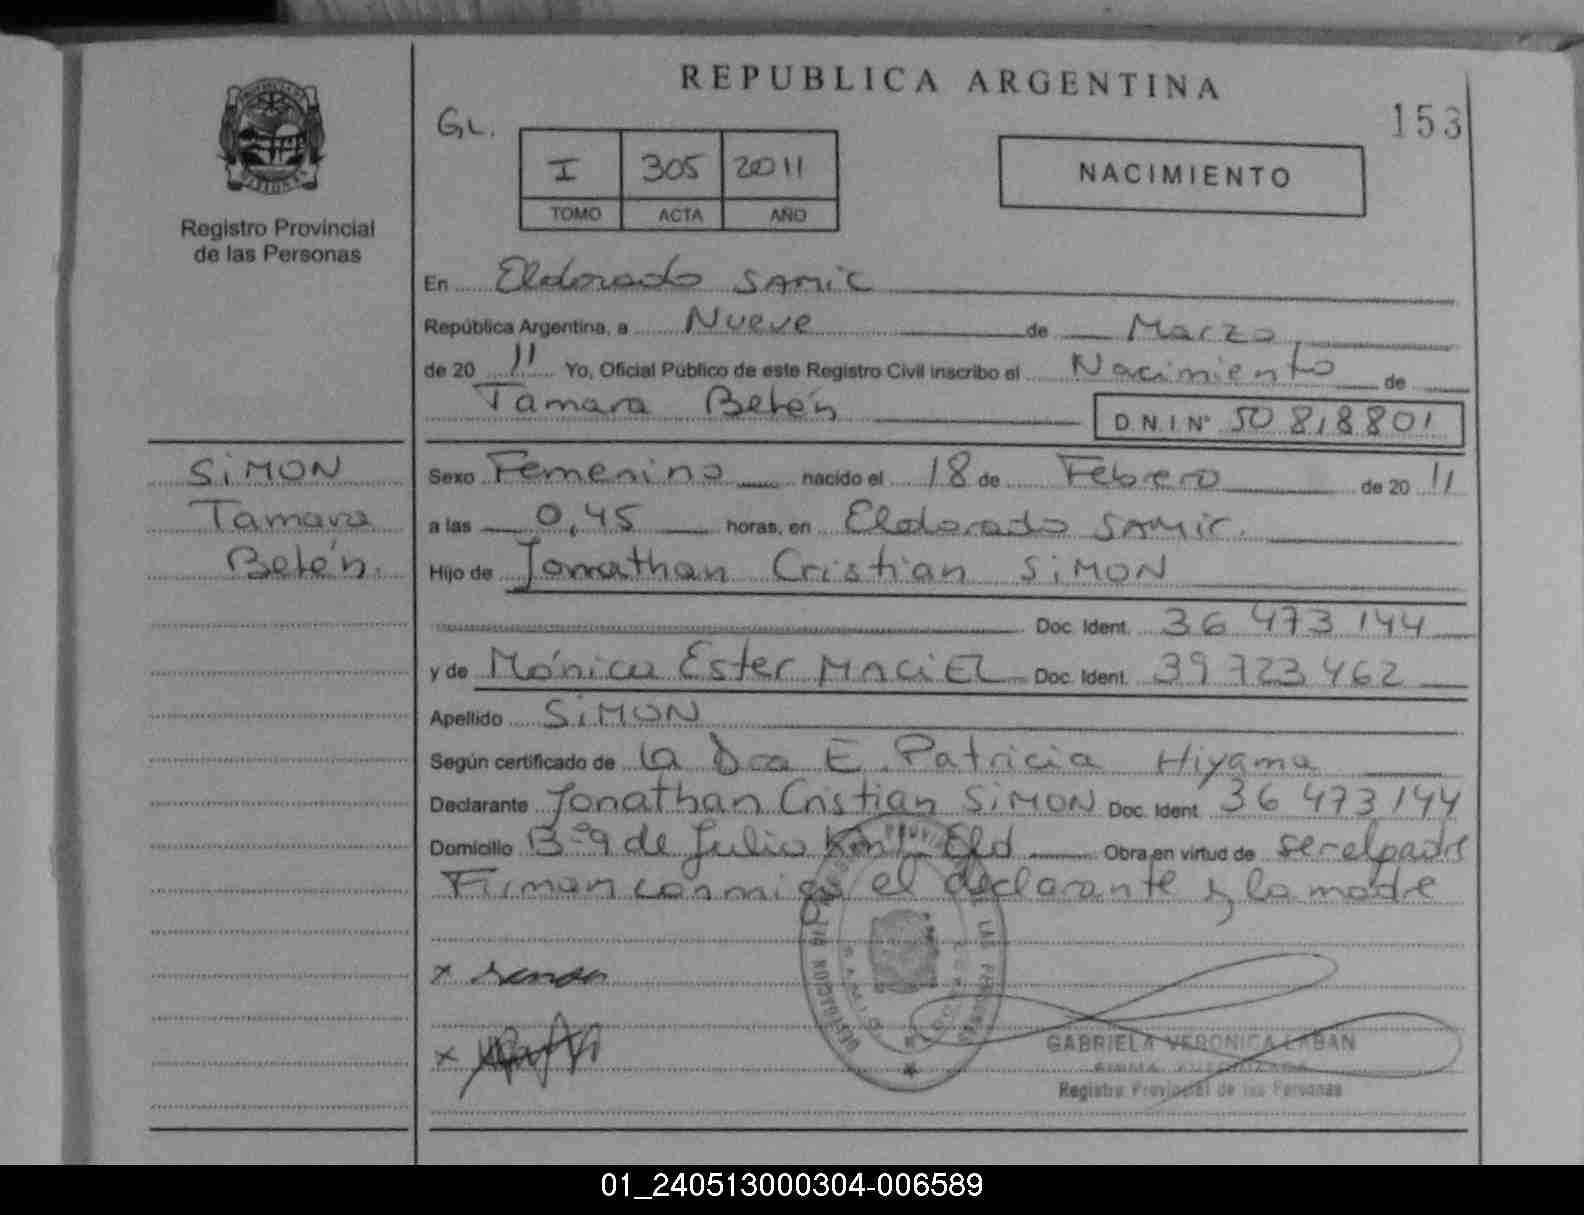 REPUBLICA ARGENTINA
153
GL.
I 305 2011
TOMO ACTA AÑO
NACIMIENTO
Registro Provincial
de las Personas
En Eldorado SAMIC
República Argentina, a Nueve de Marzo
de 20 11 Yo, Oficial Público de este Registro Civil inscribo el Nacimiento de
Tamara Belén D.N.I. Nº 50 818801
SiMON
Tamara
Belén.
Sexo Femenino nacido el 18 de Febrero de 20 11
a las 0,45 horas, en Eldorado SAMIC.
Hijo de Jonathan Cristian SiMON
Doc. Ident. 36 473 144
y de Mónica Ester MACiEL Doc. Ident. 39 723 462
Apellido SiMON
Según certificado de La Dra E. Patricia Hiyama
Declarante Jonathan Cristian SiMON Doc. Ident 36 473 144
Domicilio Bº 9 de Julio Km 1 Eld Obra en virtud de ser el padre
Firman conmigo el declarante y la madre
GABRIELA VERONICA LABAN
Registro Provincial de las Personas
01_240513000304-006589